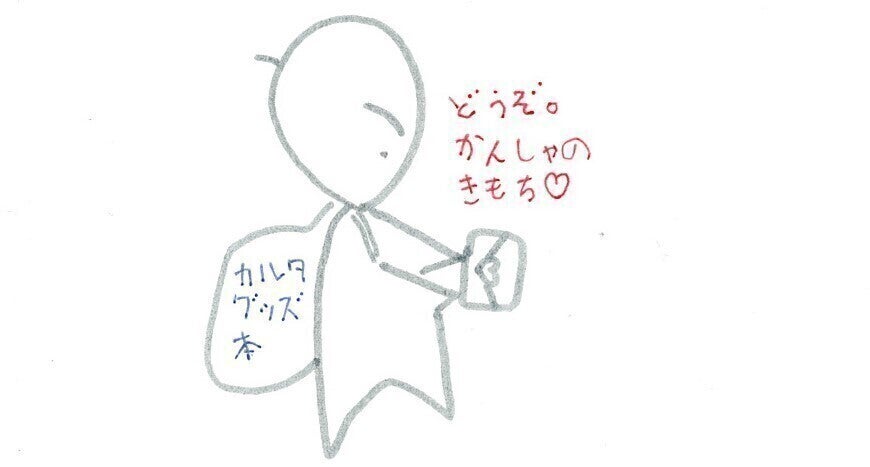 どうぞ。
かんしゃの
きもち♡
カルタ
グッズ
本